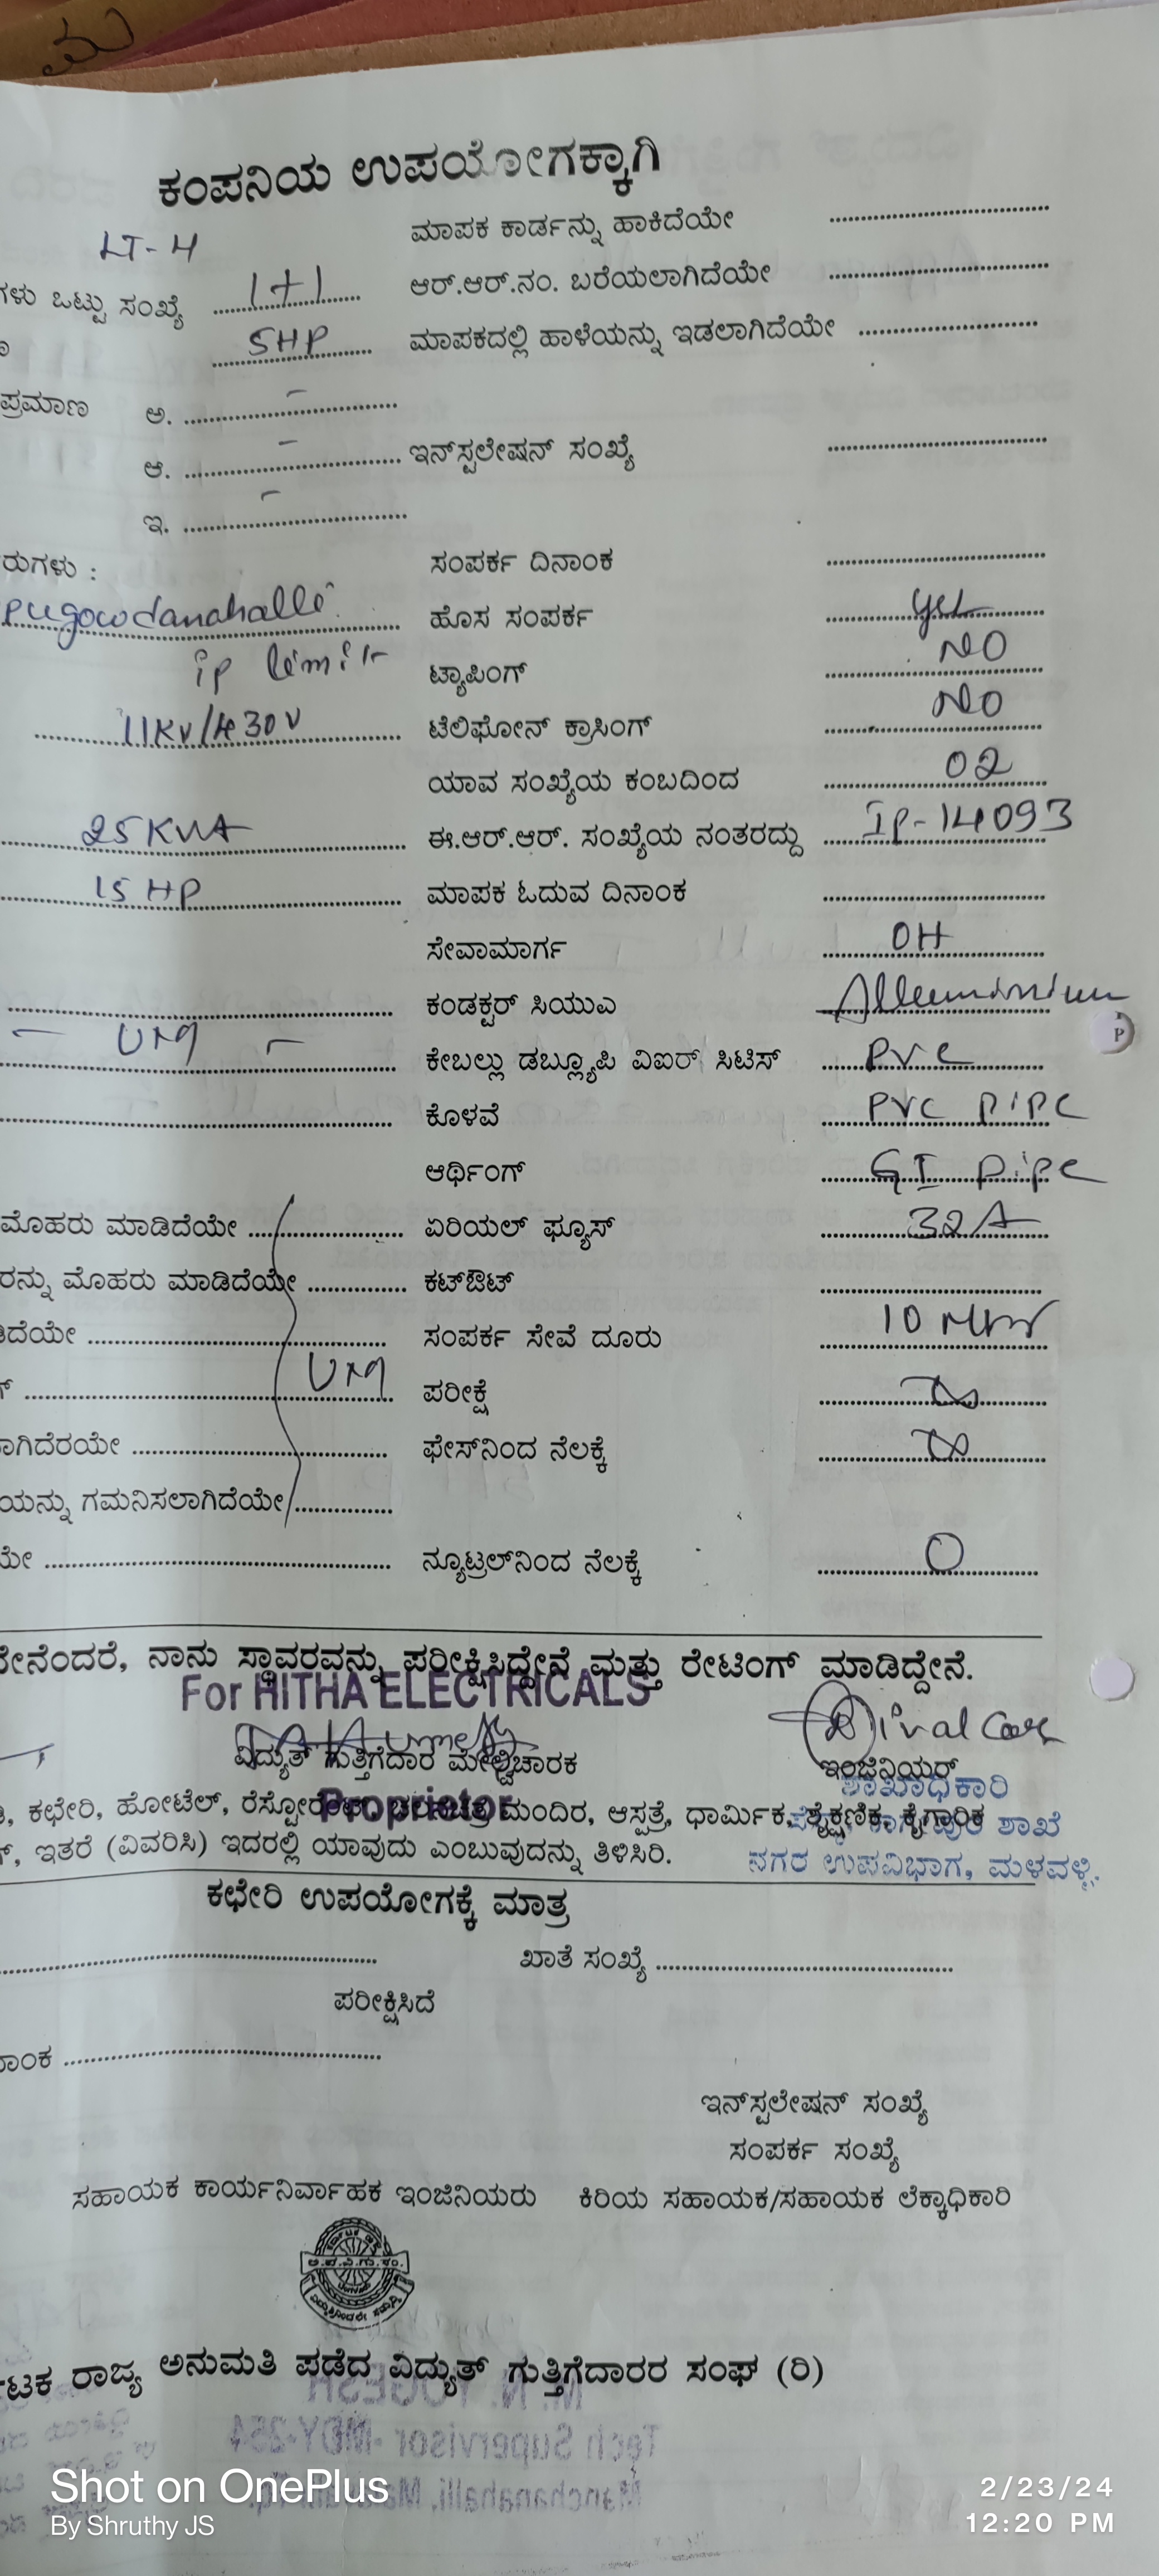 ಕಂಪನಿಯ ಉಪಯೋಗಕ್ಕಾಗಿ
LT-4 ಮಾಪಕ ಕಾರ್ಡನ್ನು ಹಾಕಿದೆಯೇ
ಗಳು ಒಟ್ಟು ಸಂಖ್ಯೆ 1+1 ಆರ್.ಆರ್.ನಂ. ಬರೆಯಲಾಗಿದೆಯೇ
5HP ಮಾಪಕದಲ್ಲಿ ಹಾಳೆಯನ್ನು ಇಡಲಾಗಿದೆಯೇ
ಪ್ರಮಾಣ ಅ. -
ಆ. - ಇನ್‌ಸ್ಟಲೇಷನ್ ಸಂಖ್ಯೆ
ಇ. -
ರುಗಳು : ಸಂಪರ್ಕ ದಿನಾಂಕ
pugowdanahalli ಹೊಸ ಸಂಪರ್ಕ yes
ip limit ಟ್ಯಾಪಿಂಗ್ NO
11KV/430V ಟೆಲಿಫೋನ್ ಕ್ರಾಸಿಂಗ್ NO
ಯಾವ ಸಂಖ್ಯೆಯ ಕಂಬದಿಂದ 02
25KVA ಈ.ಆರ್.ಆರ್. ಸಂಖ್ಯೆಯ ನಂತರದ್ದು IP-14093
15 HP ಮಾಪಕ ಓದುವ ದಿನಾಂಕ
ಸೇವಾಮಾರ್ಗ OH
ಕಂಡಕ್ಟರ್ ಸಿಯುಎ Alleuminium
- UM - ಕೇಬಲ್ಲು ಡಬ್ಲ್ಯೂಪಿ ವಿಐರ್ ಸಿಟಿಸ್ PVC
ಕೊಳವೆ PVC PIPE
ಆರ್ಥಿಂಗ್ GI pipe
ಮೊಹರು ಮಾಡಿದೆಯೇ ಏರಿಯಲ್ ಫ್ಯೂಸ್ 32A
ರನ್ನು ಮೊಹರು ಮಾಡಿದೆಯೇ ಕಟ್‌ಔಟ್
ಡಿದೆಯೇ ಸಂಪರ್ಕ ಸೇವೆ ದೂರು 10 Mtr
UM ಪರೀಕ್ಷೆ ∞
ಾಗಿದೆರಯೇ ಫೇಸ್‌ನಿಂದ ನೆಲಕ್ಕೆ ∞
ಯನ್ನು ಗಮನಿಸಲಾಗಿದೆಯೇ
ಯೇ ನ್ಯೂಟ್ರಲ್‌ನಿಂದ ನೆಲಕ್ಕೆ 0
ನೇನೆಂದರೆ, ನಾನು ಸ್ಥಾವರವನ್ನು ಪರೀಕ್ಷಿಸಿದ್ದೇನೆ ಮತ್ತು ರೇಟಿಂಗ್ ಮಾಡಿದ್ದೇನೆ.
For HITHA ELECTRICALS
ವಿದ್ಯುತ್ ಗುತ್ತಿಗೆದಾರ ಮೇಲ್ವಿಚಾರಕ ಇಂಜಿನಿಯರ್
Proprietor ಶಾಖಾಧಿಕಾರಿ
ಕಛೇರಿ, ಹೋಟೆಲ್, ರೆಸ್ಟೋರೆಂಟ್, ಚಲನಚಿತ್ರ ಮಂದಿರ, ಆಸ್ಪತ್ರೆ, ಧಾರ್ಮಿಕ, ಶೈಕ್ಷಣಿಕ, ಕೈಗಾರಿಕ
ಶಾಖೆ
ಇತರೆ (ವಿವರಿಸಿ) ಇದರಲ್ಲಿ ಯಾವುದು ಎಂಬುವುದನ್ನು ತಿಳಿಸಿರಿ.
ನಗರ ಉಪವಿಭಾಗ, ಮಳವಳ್ಳಿ.
ಕಛೇರಿ ಉಪಯೋಗಕ್ಕೆ ಮಾತ್ರ
ಖಾತೆ ಸಂಖ್ಯೆ
ಪರೀಕ್ಷಿಸಿದೆ
ನಾಂಕ
ಇನ್‌ಸ್ಟಲೇಷನ್ ಸಂಖ್ಯೆ
ಸಂಪರ್ಕ ಸಂಖ್ಯೆ
ಸಹಾಯಕ ಕಾರ್ಯನಿರ್ವಾಹಕ ಇಂಜಿನಿಯರು ಕಿರಿಯ ಸಹಾಯಕ/ಸಹಾಯಕ ಲೆಕ್ಕಾಧಿಕಾರಿ
ರ್ನಾಟಕ ರಾಜ್ಯ ಅನುಮತಿ ಪಡೆದ ವಿದ್ಯುತ್ ಗುತ್ತಿಗೆದಾರರ ಸಂಘ (ರಿ)
Shot on OnePlus
By Shruthy JS
2/23/24
12:20 PM